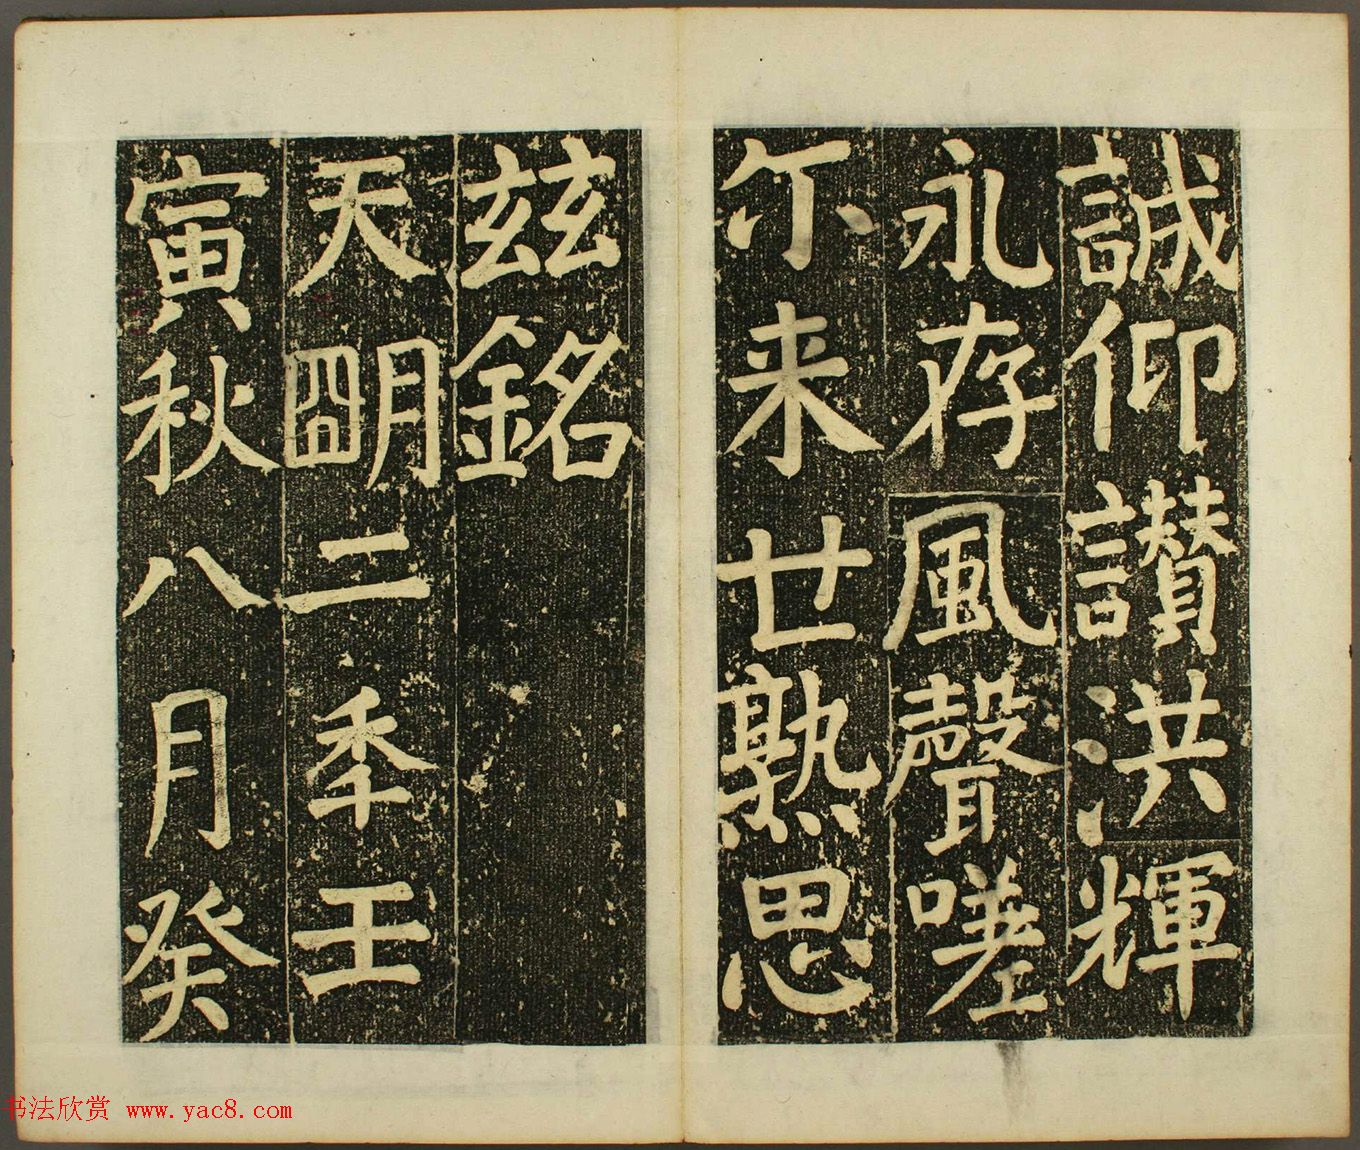 誠仰讃洪輝
永存風聲嗟
尒来廿熟思
兹銘
天朙二秊壬
寅秋八月癸
书法欣赏 www.yac8.com